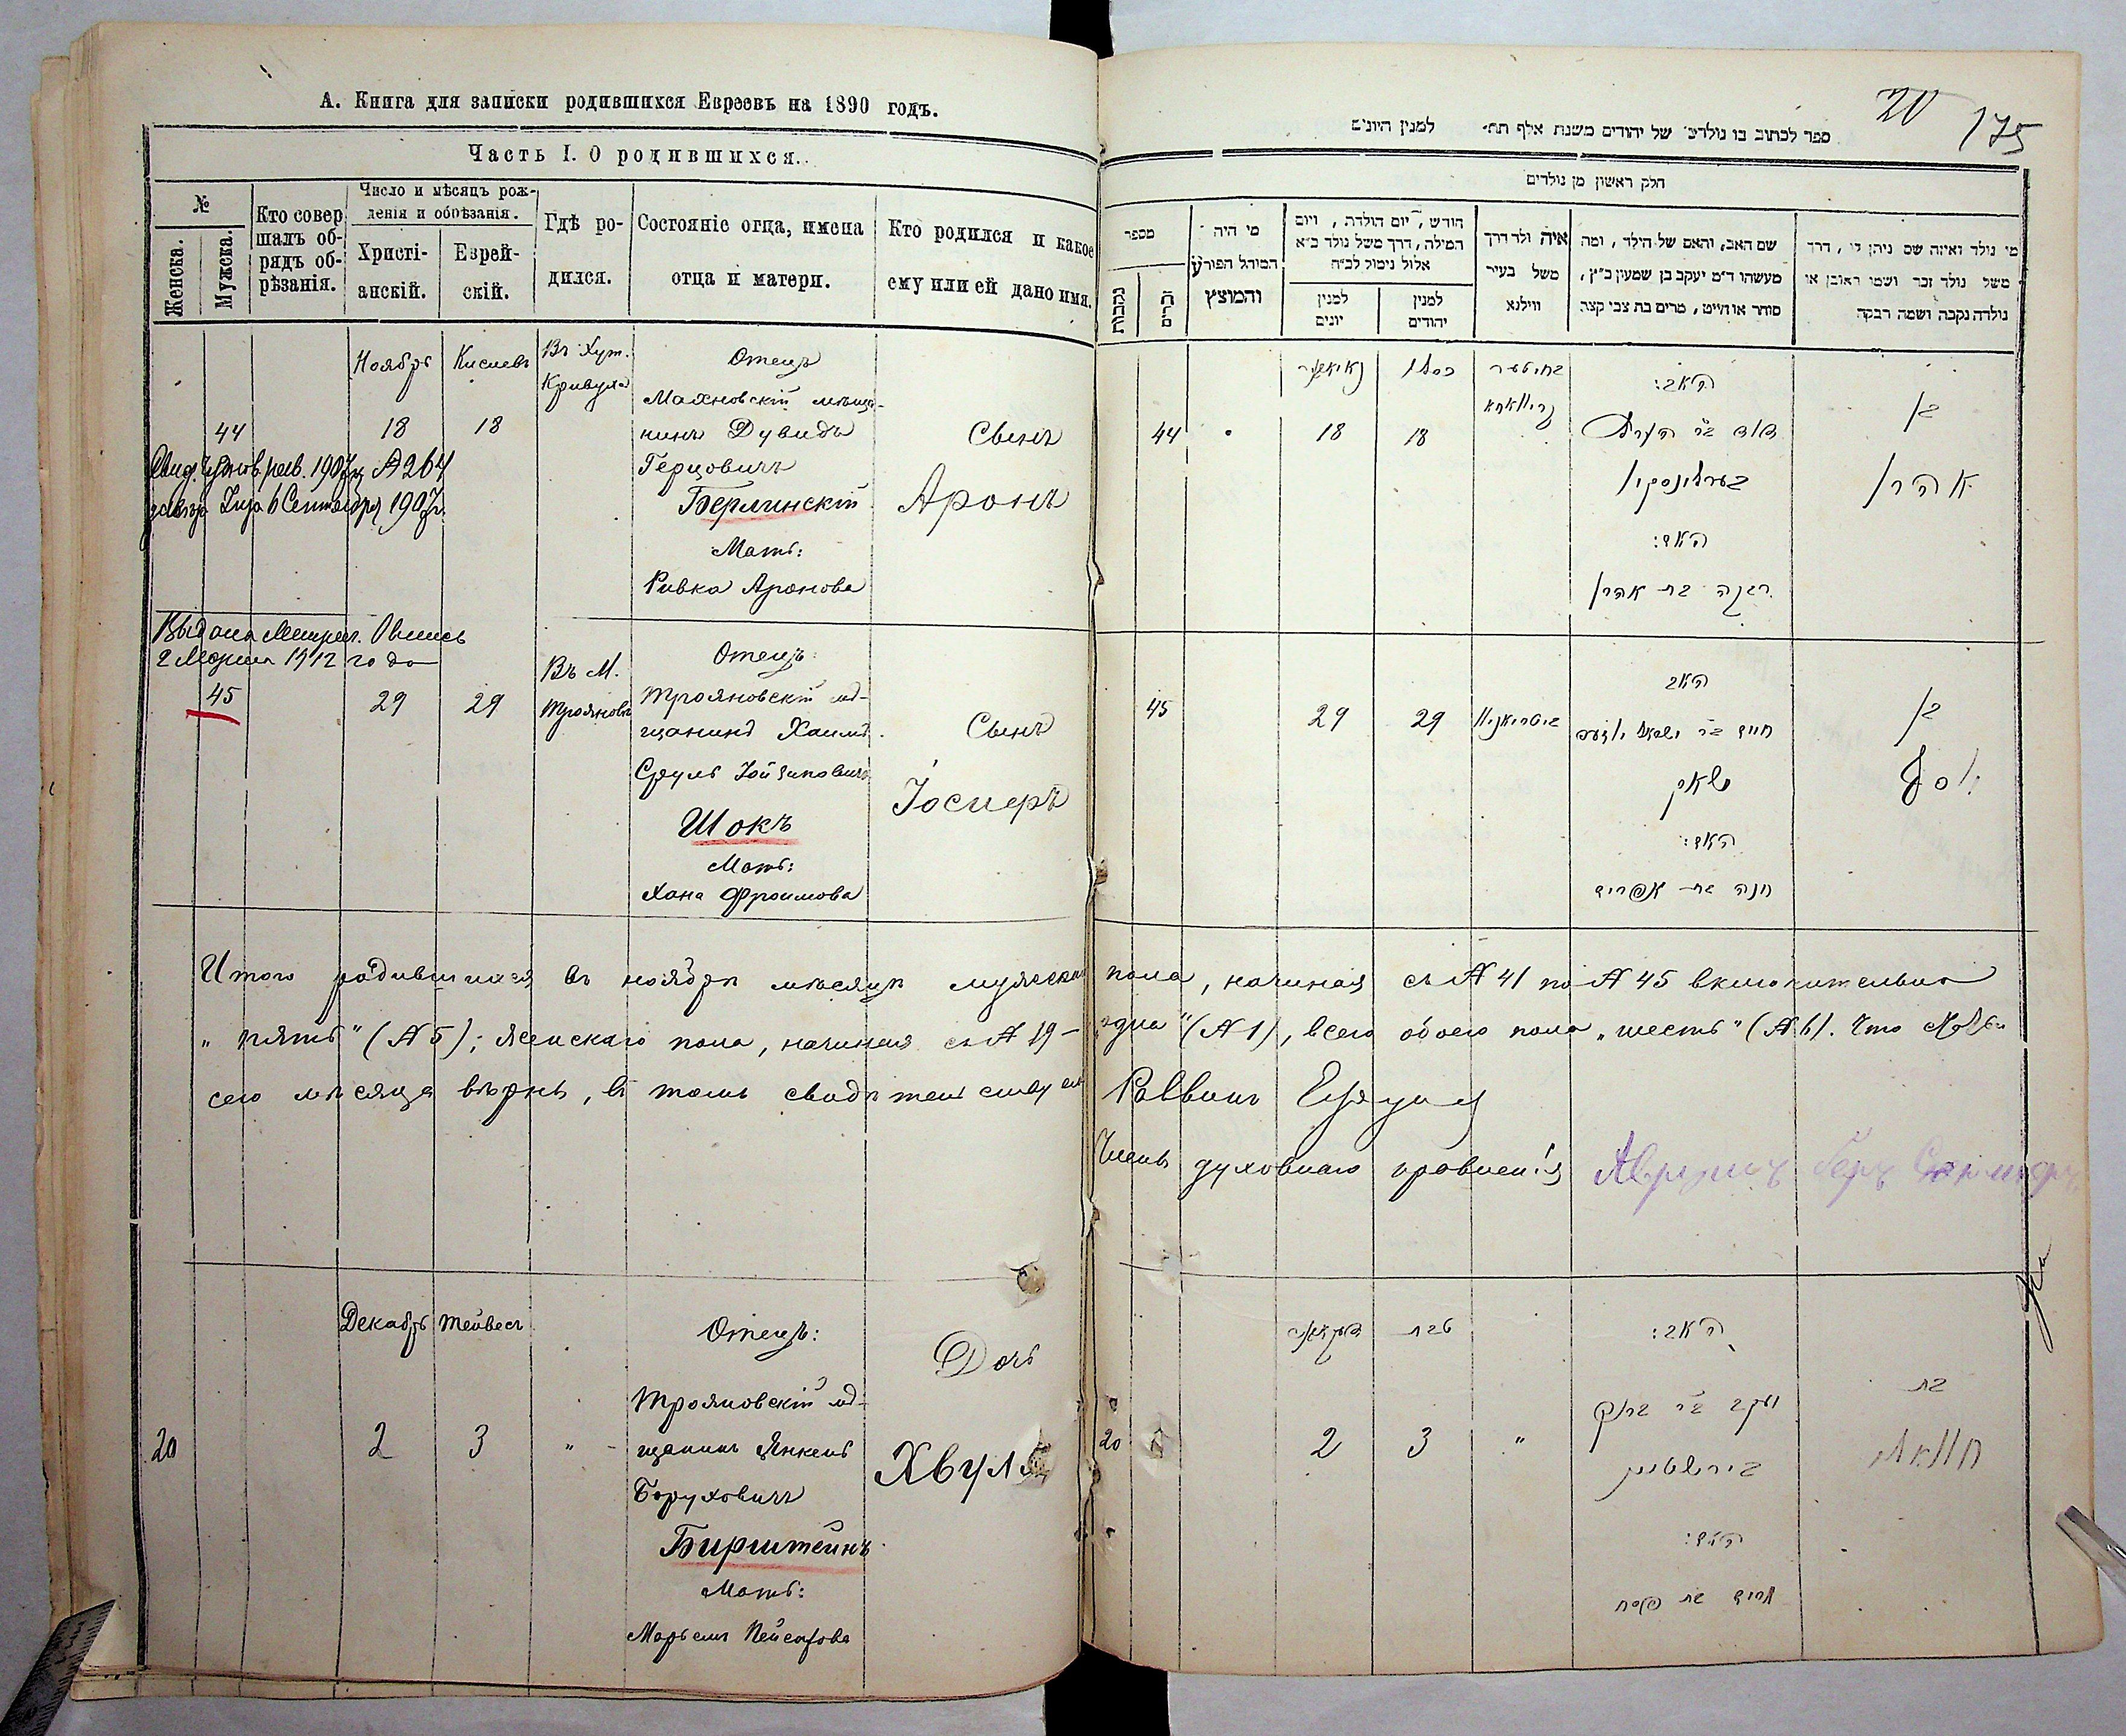 А. Книга для записки родившихся Евреевъ на 1890 годъ.
Часть I. О родившихся.
№
Женска.
Мужска.
Кто совер
шалъ об-
рядъ об-
рѣзанія.
Число и мѣсяцъ рож-
денія и обрѣзанія.
Христі-
анскій.
Еврей-
скій.
Гдѣ ро-
дился.
Состояніе отца, имена
отца и матери.
Кто родился и какое
ему или ей дано имя.
44
Ноябрь
18
Кислевъ
18
Въ Хут.
Кривуха
Отецъ
Махновскій мѣща-
нинъ Дувидъ
Герцовичъ
Берлинскій
Мать:
Ривка Аронова
Сынъ
Аронъ
1907 № 264
6 Сентября 1907 г.
Выдана Метрич. Выпись
2 Марта 1912 года
45
29
29
Въ М.
Трояновъ
Отецъ:
Трояновскій мѣ-
щанинъ Хаимъ
Сруль Іойзиповичъ
Шокъ
Мать:
Хана Фроимова
Сынъ
Іосифъ
Итого родившихся въ ноябрѣ мѣсяцѣ мужскаго пола, начиная съ № 41 по № 45 включительно
„пять" (№ 5); женскаго пола, начиная съ № 19 – „одна" (№ 1), всего обоего пола „шесть" (№ 6). Что
сего мѣсяца вѣрны, въ томъ свидѣтельствуемъ Раввинъ
Членъ духовнаго правленія Аврумъ Беръ
20
Декабрь
2
Тейвесъ
3
"
Отецъ:
Трояновскій мѣ-
щанинъ Янкель
Боруховичъ
Бирштейнъ
Мать:
Марьемъ Пейсахова
Дочь
Хвуля
20
175
ספר לכתוב בו נולדים של יהודים משנת אלף תת׳ למנין היונים
חלק ראשון מן נולדים
מספר
נקבות
זכרים
מי היה
המוהל הפורע
והמוצץ
חודש, יום הולדה, ויום
המילה, דרך משל נולד כ״א
אלול נימול לכ״ח
למנין
יונים
למנין
יהודים
איה ולד דרך
משל בעיר
ווילנא
שם האב, והאם של הילד, ומה
מעשהו ד״מ יעקב בן שמעון כ״ץ,
סוחר או חייט, מרים בת צבי קצב
מי נולד ואיזה שם ניתן לו, דרך
משל נולד זכר ושמו ראובן או
נולדה נקבה ושמה רבקה
44
18
כסלו
18
האב:
דוד ב״ר הערץ
בערלינסקי
האם:
רבקה בת אהרן
בן
אהרן
45
29
29
האב
חיים ב״ר ישראל
שאק
האם:
חנה בת אפרים
בן
יוסף
20
2
טבת
3
"
האב:
יעקב ב״ר ברוך
בירשטיין
האם:
מרים בת פסח
בת
חוואליע